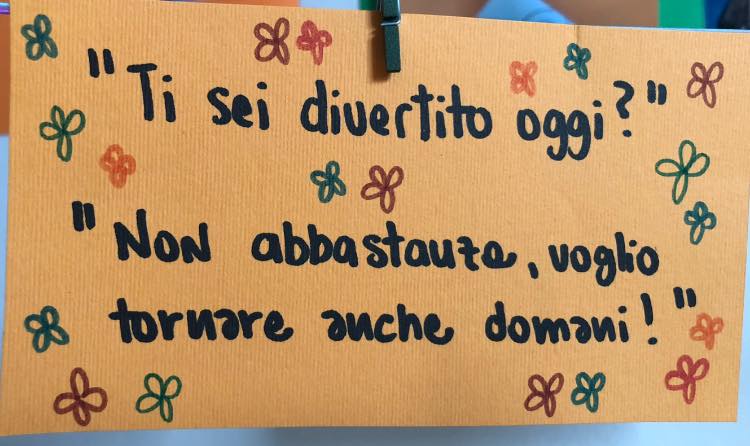 "Ti sei divertito oggi?"
"Non abbastanza, voglio
tornare anche domani!"